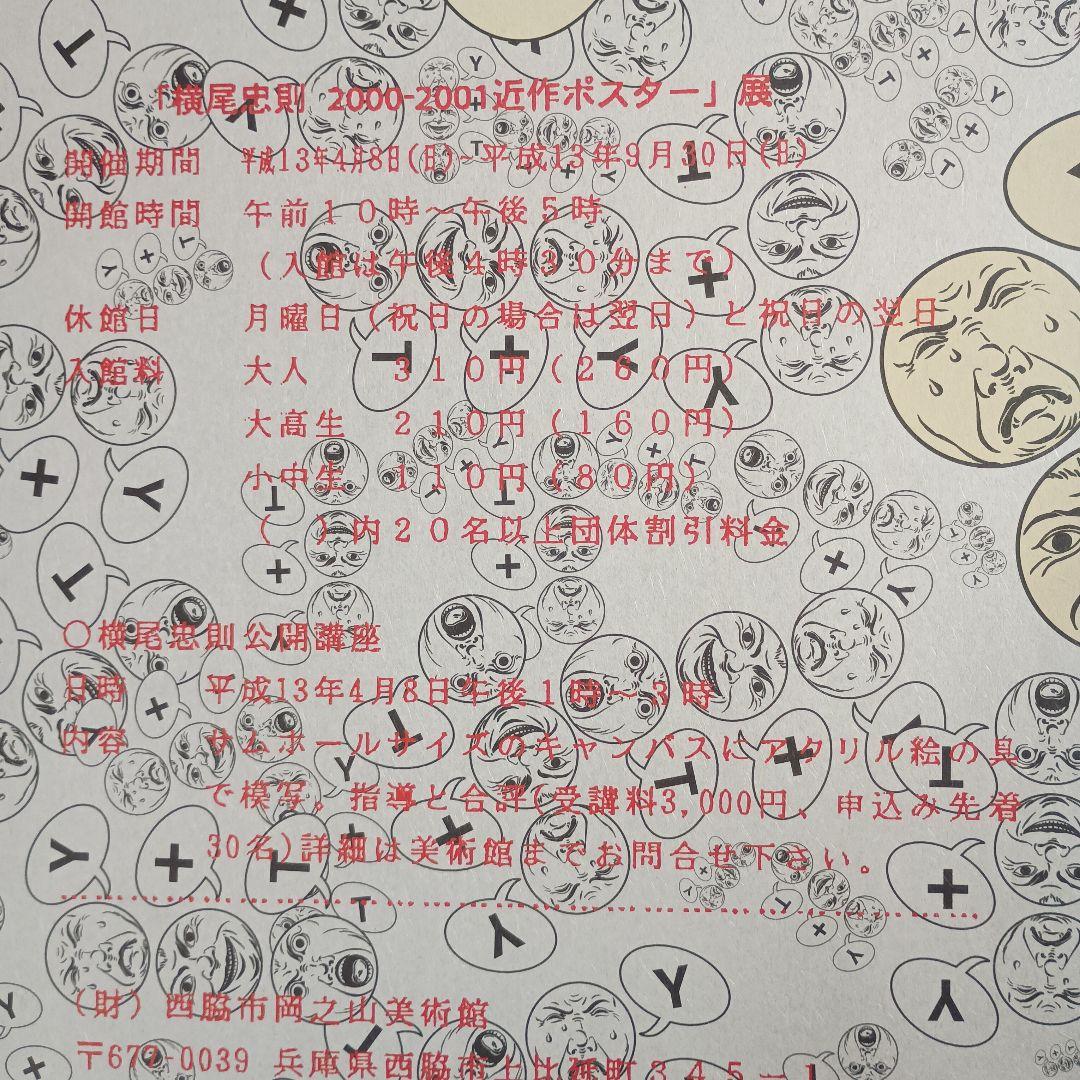 「横尾忠則 2000-2001近作ポスター」展
開催期間 平成13年4月8日(日)~平成13年9月30日(日)
開館時間 午前１０時～午後５時
（入館は午後４時３０分まで）
休館日 月曜日（祝日の場合は翌日）と祝日の翌日
入館料 大人 ３１０円（２６０円）
大高生 ２１０円（１６０円）
小中生 １１０円（８０円）
（ ）内２０名以上団体割引料金
○横尾忠則公開講座
日時 平成13年4月8日午後１時～３時
内容 サムホールサイズのキャンバスにアクリル絵の具
で模写。指導と合評(受講料3,000円、申込み先着
30名)詳細は美術館までお問合せ下さい。
（財）西脇市岡之山美術館
〒677-0039 兵庫県西脇市上比延町３４５－１